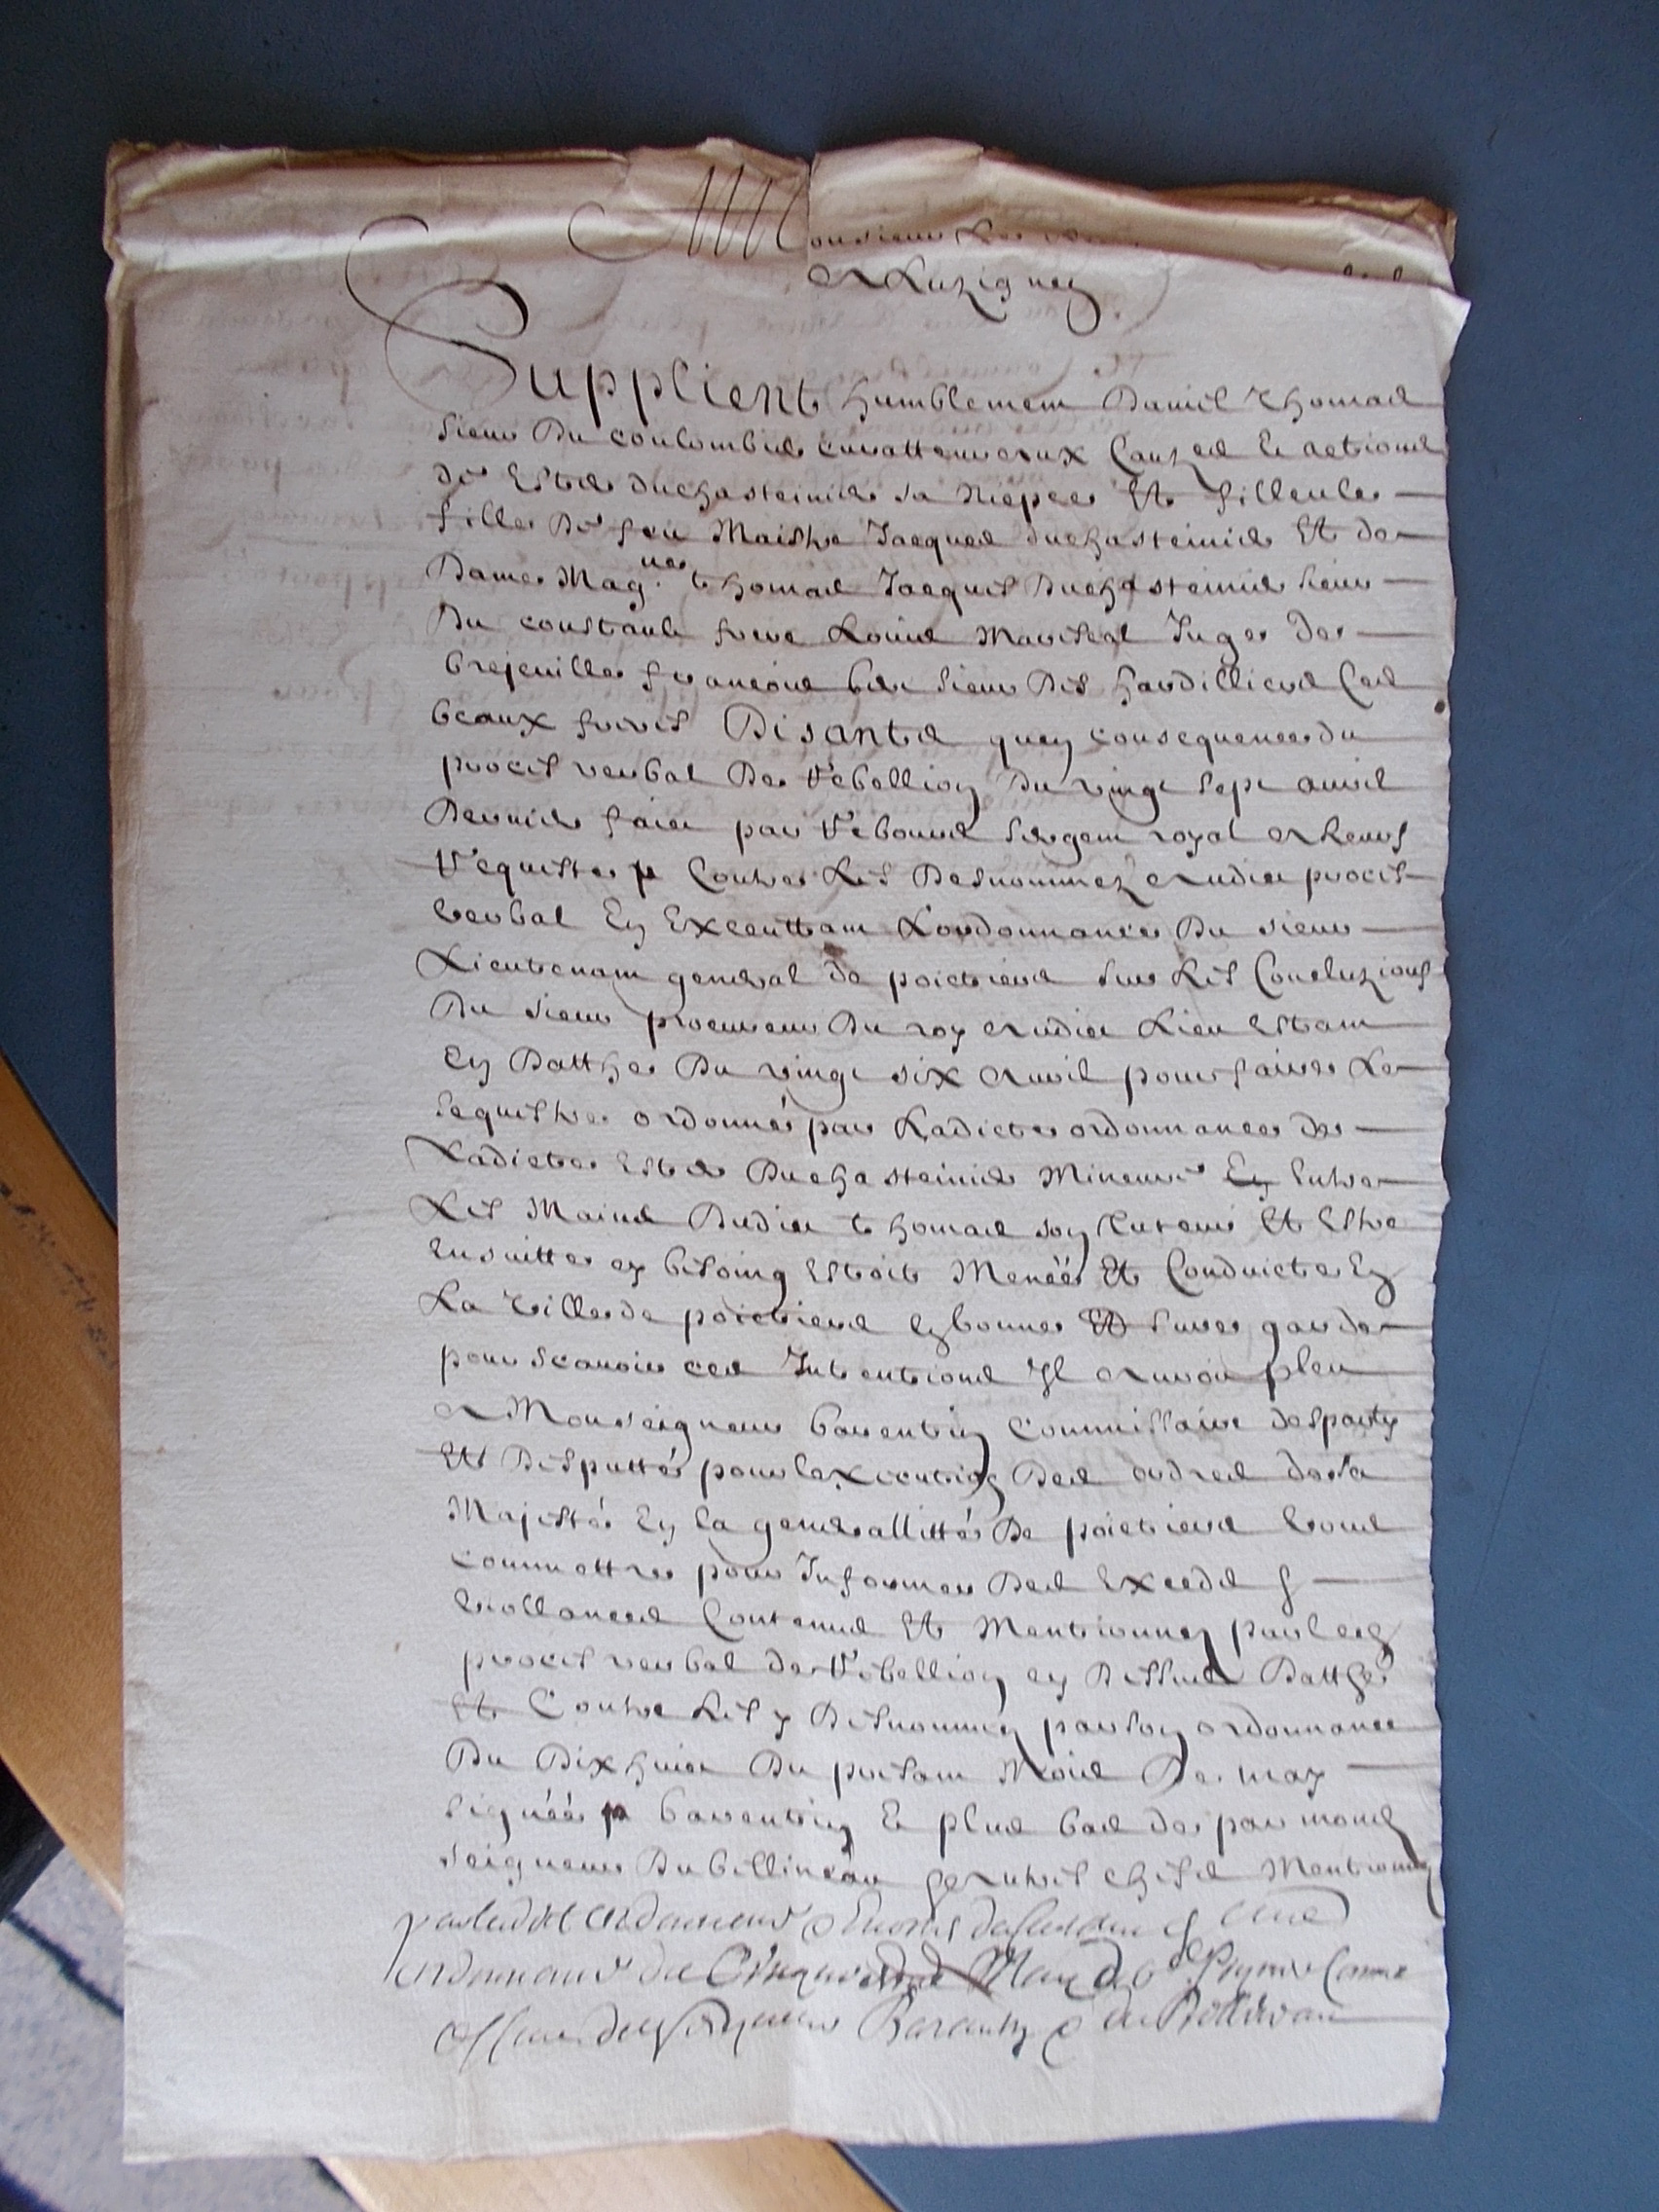 Monsieur Le
A Luzignen
Supplient humblement Daniel Thomas
sieur Du coulombier curatteur aux Causes et actions
de Ester duchasteinier sa Niepce Et filleule
fille De feu Maistre Jacques duchasteinier Et de
Dame Mag.ne thomas Jacques Duchasteinier sieur
Du constault frere Louis Mareschal Juge de
brejeuille francois sieur Des hardilliers ces
beaux freres Disants quen consequence du
proces verbal De Rebellion Du vingt sept avril
Dernier faict par Ribouns sergent royal a leurs
Requeste Contre Les Desnommez audict proces
verbal En Executtant Lordonnance Du sieur
Lieutenant general de poictiers sur Les Concluzions
Du sieur procureur Du roy audict Lieu Estant
En Datthe Du vingt six Avril pour faire Le
sequestre ordonné par Ladicte ordonnance de
Ladicte Ester Duchasteinier Mineure En Entre
Les Mains Dudict thomas son Cureur Et Estre
Ensuitte sy besoing Estoit Menéé Et Conduicte En
La Ville de poictiers En bonne Et Sure garde
pour scavoir ces Intentions Il auroit pleu
A Monseigneur barentin Commissaire desparty
Et Desputté pour lexecution Des ordres de sa
Majesté En la generallitté De poictiers vous
commettre pour Informer Des Excedz &
viollances Contenus Et Mentionnez par led
proces verbal de Rebellion cy Dessus Datthé
Et Contre Les y Desnommez par son ordonnance
Du Dixhuict Du present Mois De may
signéé barentin Et plus bas de par mond
seigneur Du bellineau Mentionnez
ordonnance
Barentin